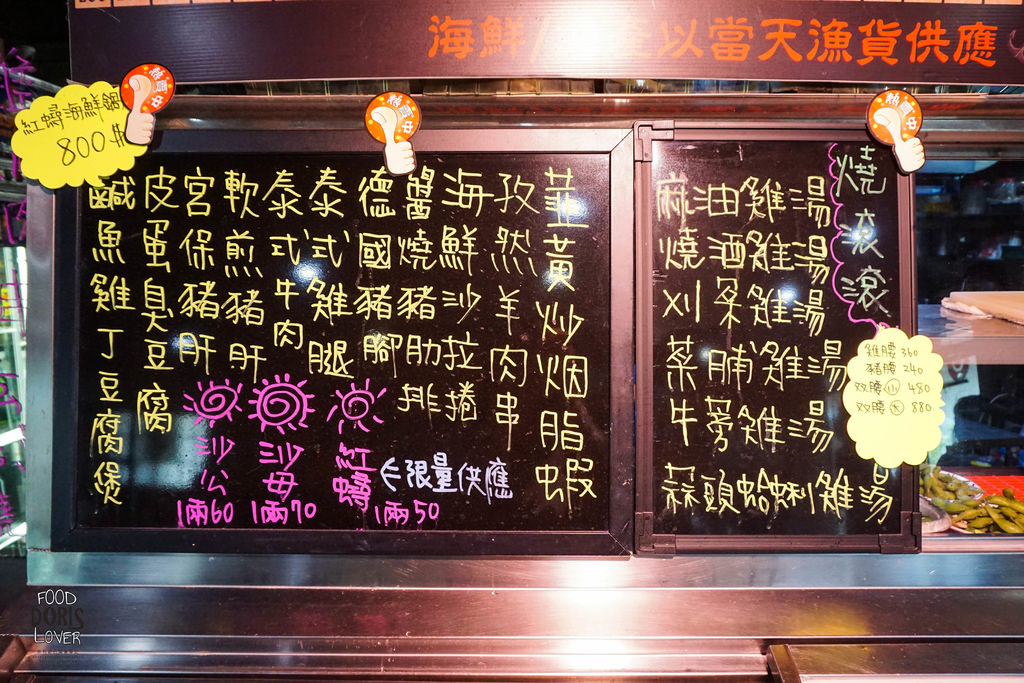 海鮮/
以當天漁貨供應
熱賣中
熱賣中
熱賣中
紅蟳海鮮鍋
800元
燒滾滾
麻油雞湯
燒酒雞湯
刈菜雞湯
菜脯雞湯
牛蒡雞湯
蒜頭蛤蜊雞湯
雞腰 360
豬腰 240
双腰(小) 480
双腰(大) 880
韮黃炒烟脂蝦
孜然羊肉串
海鮮沙拉捲
醬燒豬肋排
德國豬腳
泰式雞腿
泰式牛肉
軟煎豬肝
宮保豬肝
皮蛋臭豆腐
鹹魚雞丁豆腐煲
沙公
1兩60
沙母
1兩70
紅蟳
1兩50
限量供應
FOOD
DORIS
LOVER